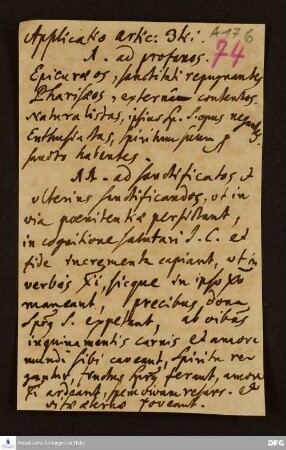 Applicatio artic. 3tii.
A 176
74
A. ad profanos.
Epicuraeos, sanctitati repugnantes
Pharisaeos, externâ contentos.
Naturalistas, ipsius Sp. S. opus negantes
Enthusiastas, spiritum suum pro
sancto habentes
AA. ad sanctificatos et
ulterius sanctificandos, ut in
via poenitentiae persistant,
in cognitione salutari J. C. et
fide incrementa capiant, ut in
verbo Xi, sicque in ipso Xo
maneant, precibus dona
S. expetant, ab oibus
inquinamentis carnis et amore
mundi sibi caveant, spiritu
fructus ferant, amore
Xi ardeant, spem vivam resurr. et
vitae aeternae foveant.
Franckesche Stiftungen zu Halle
DFG